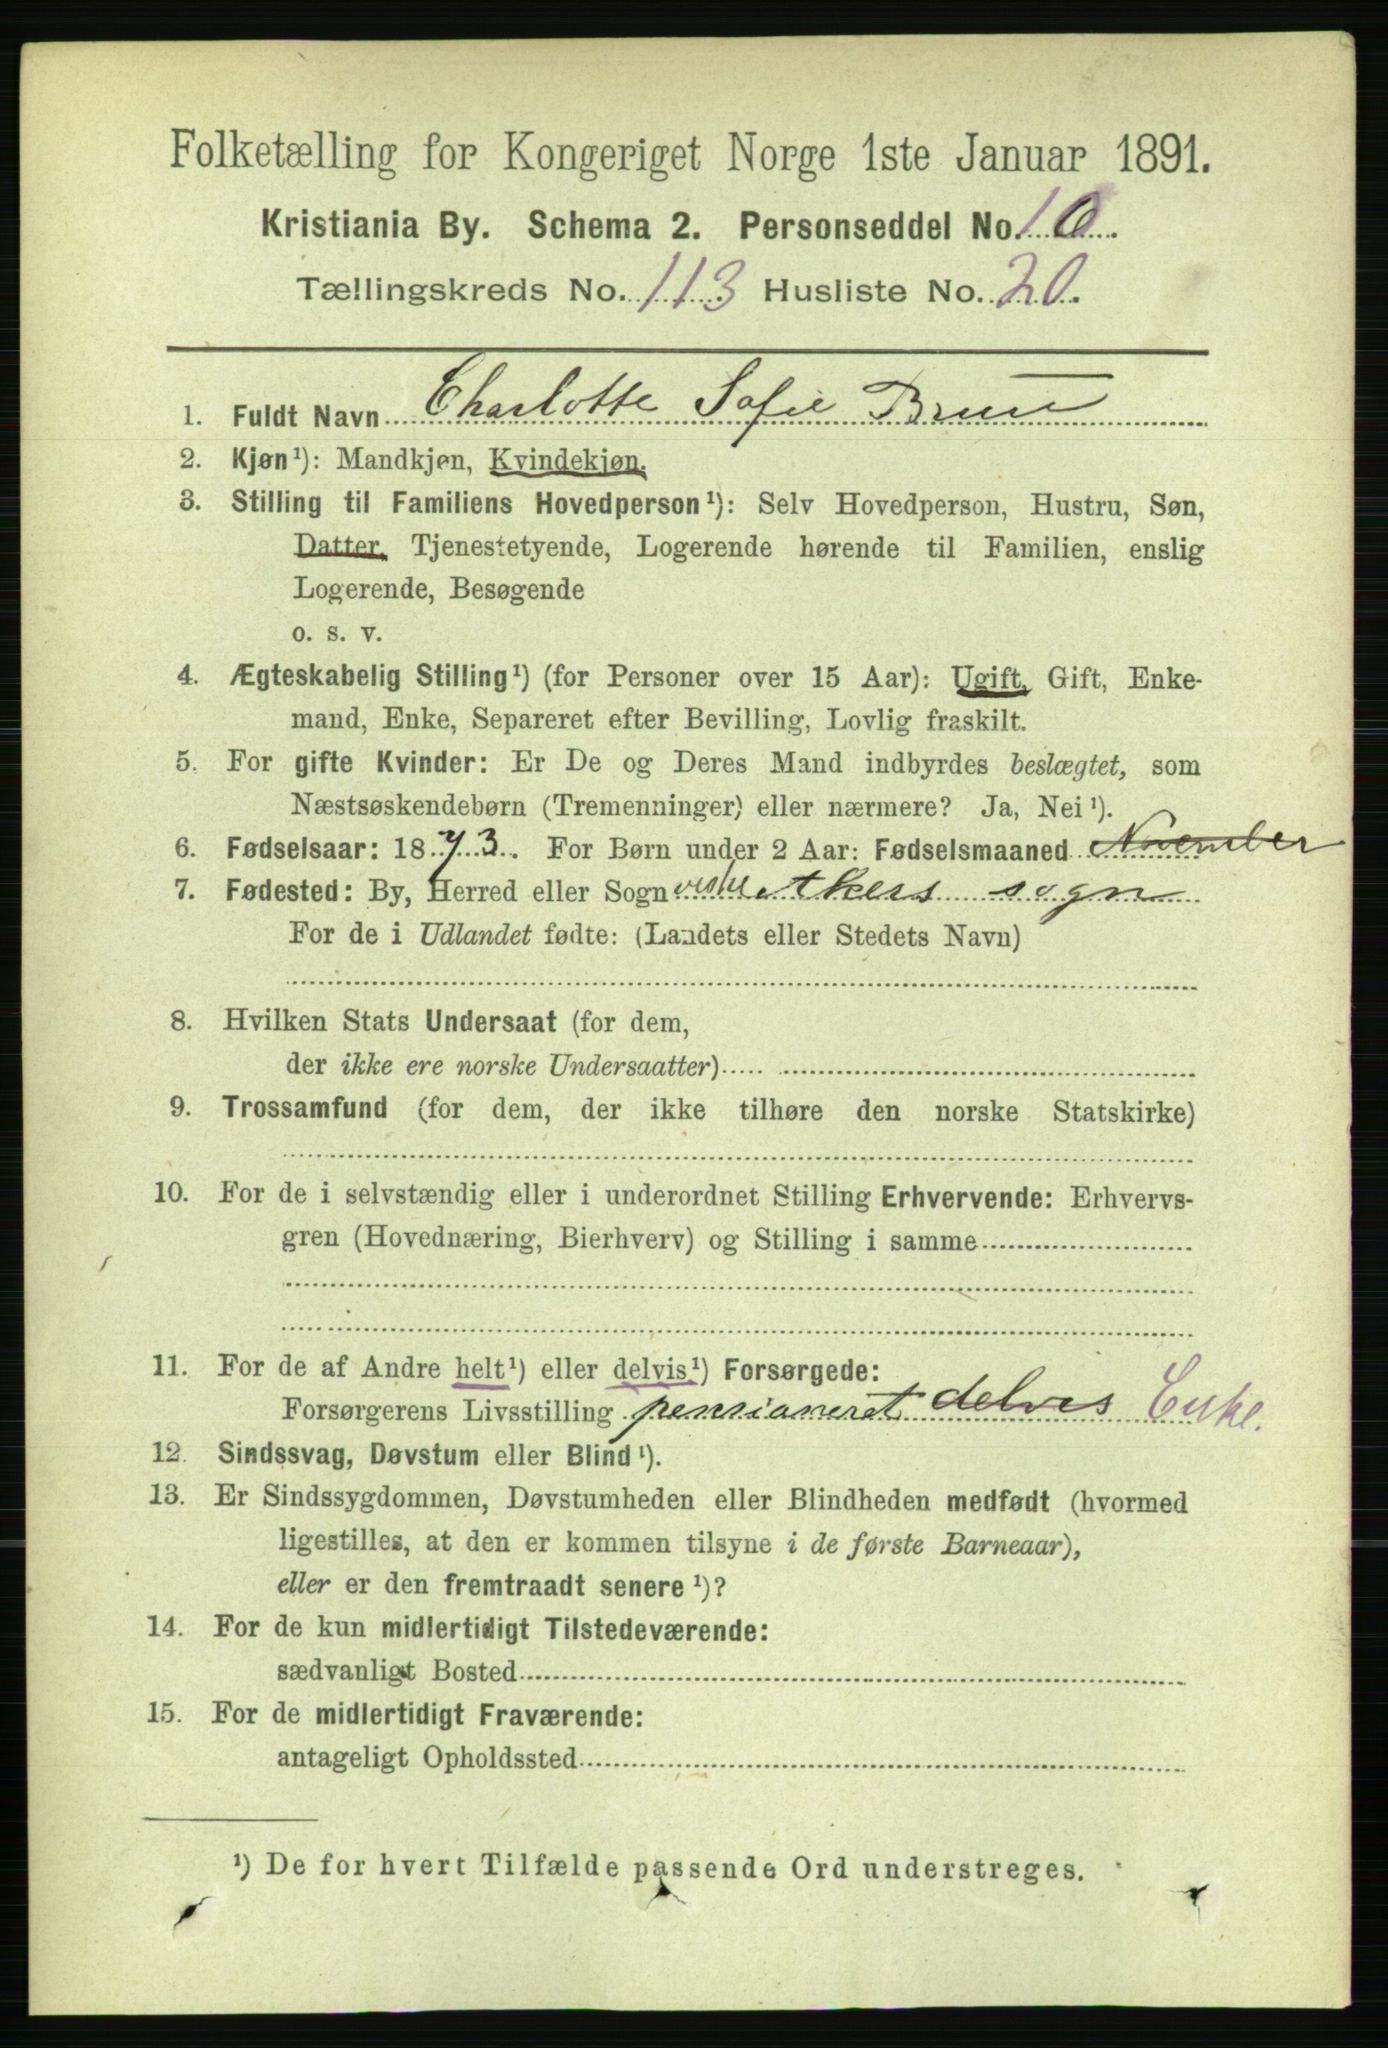 Folketælling for Kongeriget Norge 1ste Januar 1891.
Kristiania By. Schema 2. Personseddel No. 10.
Tællingskreds No. 113 Husliste No. 20.
1. Fuldt Navn Charlotte Sofie Bruun
2. Kjøn¹): Mandkjøn, Kvindekjøn.
3. Stilling til Familiens Hovedperson¹): Selv Hovedperson, Hustru, Søn,
Datter, Tjenestetyende, Logerende hørende til Familien, enslig
Logerende, Besøgende
o. s. v.
4. Ægteskabelig Stilling¹) (for Personer over 15 Aar): Ugift, Gift, Enke-
mand, Enke, Separeret efter Bevilling, Lovlig fraskilt.
5. For gifte Kvinder: Er De og Deres Mand indbyrdes beslægtet, som
Næstsøskendebørn (Tremenninger) eller nærmere? Ja, Nei¹).
6. Fødselsaar: 1873. For Børn under 2 Aar: Fødselsmaaned November
7. Fødested: By, Herred eller Sogn vestre Akers sogn
For de i Udlandet fødte: (Landets eller Stedets Navn)
8. Hvilken Stats Undersaat (for dem,
der ikke ere norske Undersaatter)
9. Trossamfund (for dem, der ikke tilhøre den norske Statskirke)
10. For de i selvstændig eller i underordnet Stilling Erhvervende: Erhvervs-
gren (Hovednæring, Bierhverv) og Stilling i samme
11. For de af Andre helt¹) eller delvis¹) Forsørgede:
Forsørgerens Livsstilling pensioneret delvis Enke.
12. Sindssvag, Døvstum eller Blind¹).
13. Er Sindssygdommen, Døvstumheden eller Blindheden medfødt (hvormed
ligestilles, at den er kommen tilsyne i de første Barneaar),
eller er den fremtraadt senere¹)?
14. For de kun midlertidigt Tilstedeværende:
sædvanligt Bosted
15. For de midlertidigt Fraværende:
antageligt Opholdssted
¹) De for hvert Tilfælde passende Ord understreges.